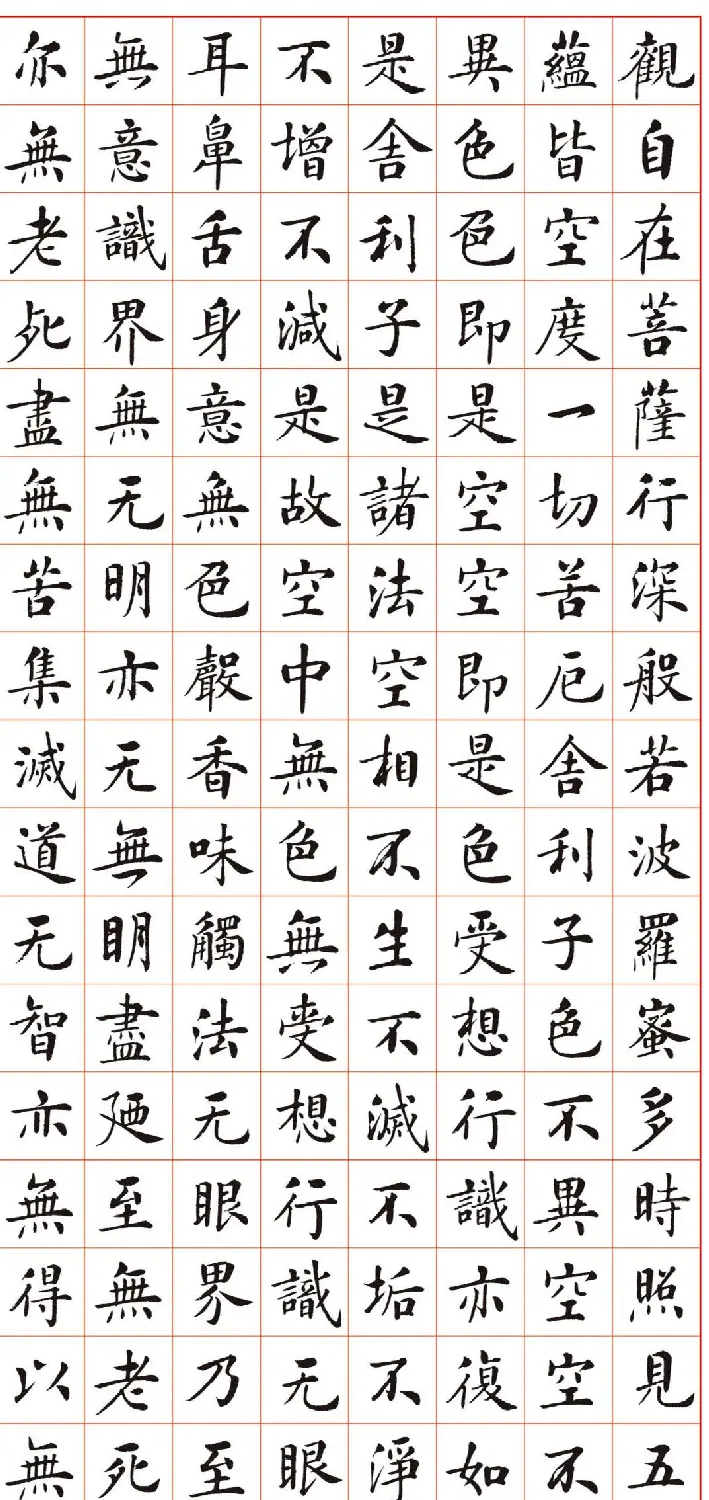 觀自在菩薩行深般若波羅蜜多時照見五
蘊皆空度一切苦厄舍利子色不異空空不
異色色即是空空即是色受想行識亦復如
是舍利子是諸法空相不生不滅不垢不淨
不增不減是故空中無色無受想行識无眼
耳鼻舌身意無色聲香味觸法无眼界乃至
無意識界無无明亦无無明盡廼至無老死
亦無老死盡無苦集滅道无智亦無得以無